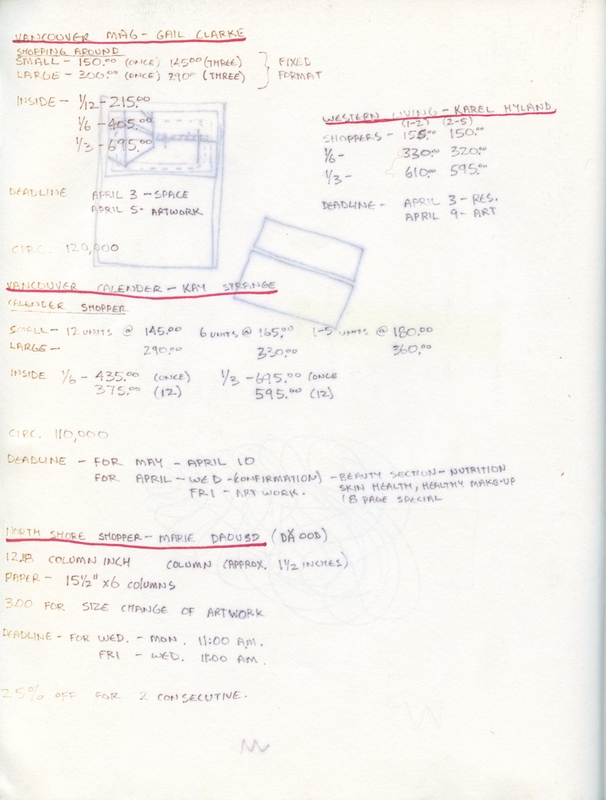 VANCOUVER MAG - GAIL CLARKE
SHOPPING AROUND
SMALL - 150.00 (ONCE) 145.00 (THREE)
LARGE - 300.00 (ONCE) 290.00 (THREE)
} FIXED
FORMAT
INSIDE - 1/12 - 215.00
1/6 - 405.00
1/3 - 695.00
DEADLINE APRIL 3 - SPACE
APRIL 5 - ARTWORK
CIRC. 120,000
WESTERN LIVING - KAREL HYLAND
(1-2) (2-5)
SHOPPERS - 155.00 150.00
1/6 - 330.00 320.00
1/3 - 610.00 595.00
DEADLINE - APRIL 3 - RES.
APRIL 9 - ART
VANCOUVER CALENDER - KAY STRANGE
CALENDER SHOPPER
SMALL - 12 UNITS @ 145.00 6 UNITS @ 165.00 1-5 UNITS @ 180.00
LARGE - 290.00 330.00 360.00
INSIDE 1/6 - 435.00 (ONCE) 1/3 - 695.00 (ONCE
375.00 (12) 595.00 (12)
CIRC. 110,000
DEADLINE - FOR MAY - APRIL 10
FOR APRIL - WED - (CONFIRMATION) - BEAUTY SECTION - NUTRITION
FRI - ARTWORK. SKIN HEALTH, HEALTHY MAKE-UP
18 PAGE SPECIAL
NORTH SHORE SHOPPER - MARIE (DA OOD)
12.18 COLUMN INCH COLUMN (APPROX. 1 1/2 INCHES)
PAPER - 15 1/2" x 6 COLUMNS
3.00 FOR SIZE CHANGE OF ARTWORK
DEADLINE - FOR WED. - MON. 11:00 AM.
FRI - WED. 11:00 AM.
25% OFF FOR 2 CONSECUTIVE.